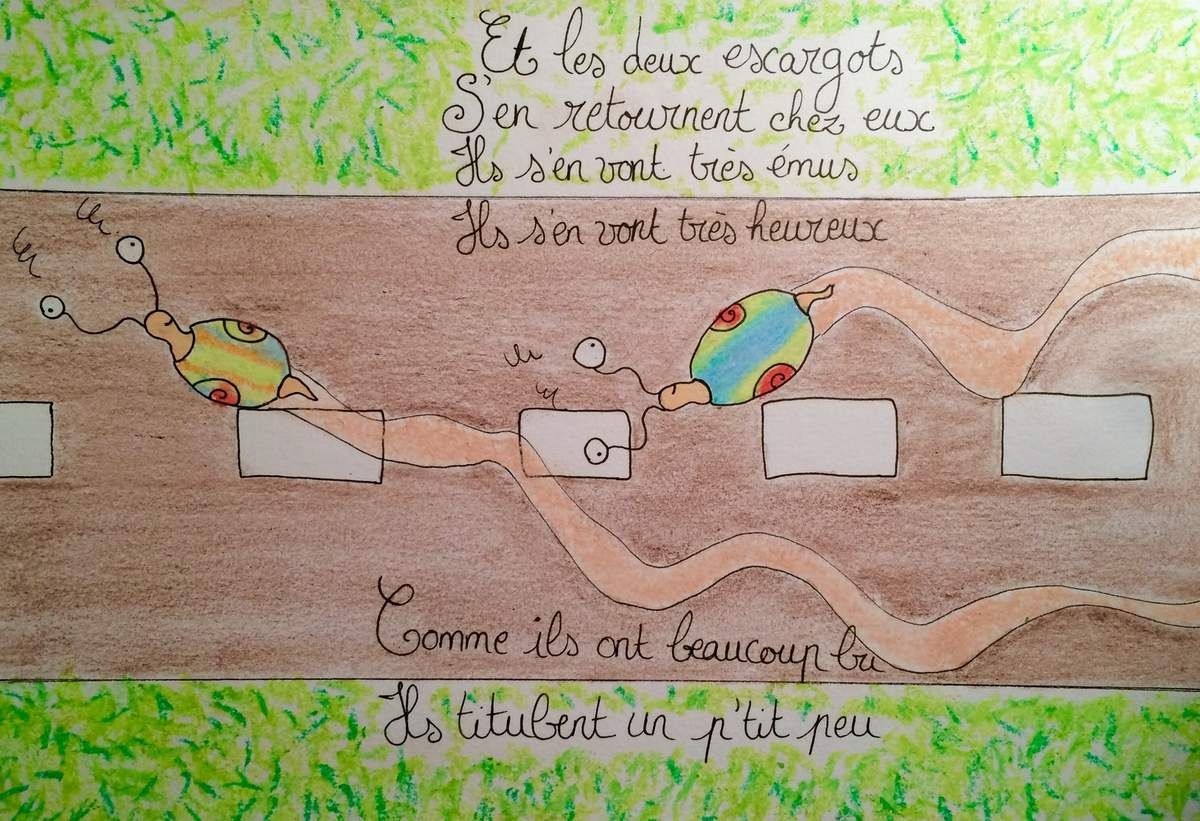 Et les deux escargots
S'en retournent chez eux
Ils s'en vont très émus
Ils s'en vont très heureux
Comme ils ont beaucoup bu
Ils titubent un p'tit peu